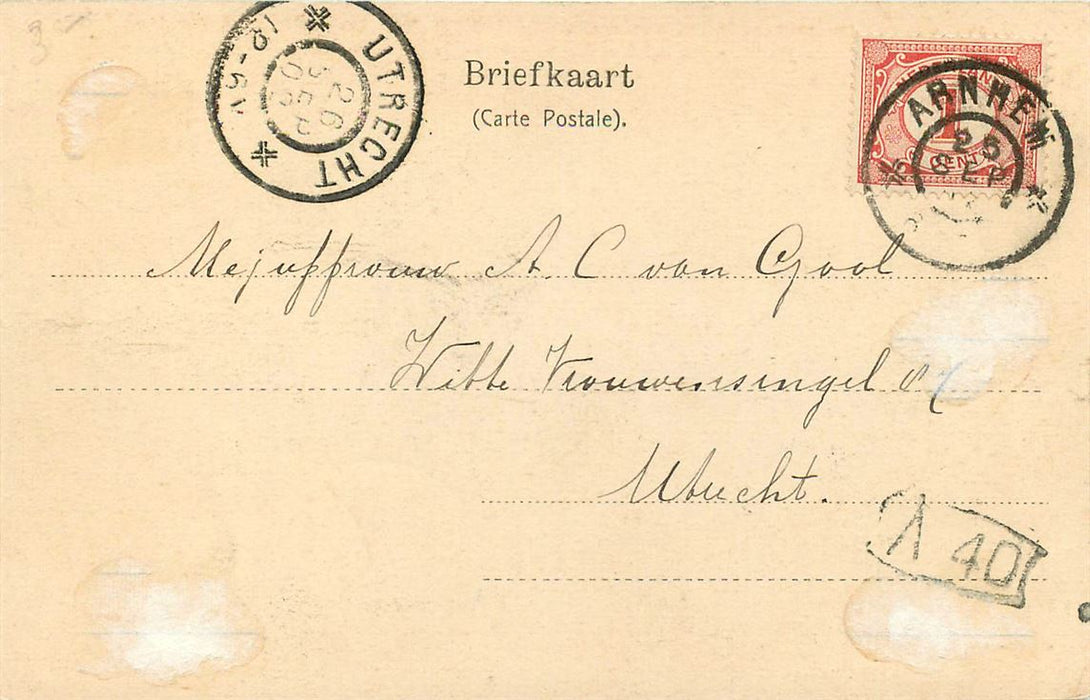 3-
UTRECHT
26
SEP
Briefkaart
(Carte Postale).
1
CENT
ARNHEM
25
SEP
Mejuffrouw A. C van Gool
Witte Vrouwensingel
Utrecht.
A 40